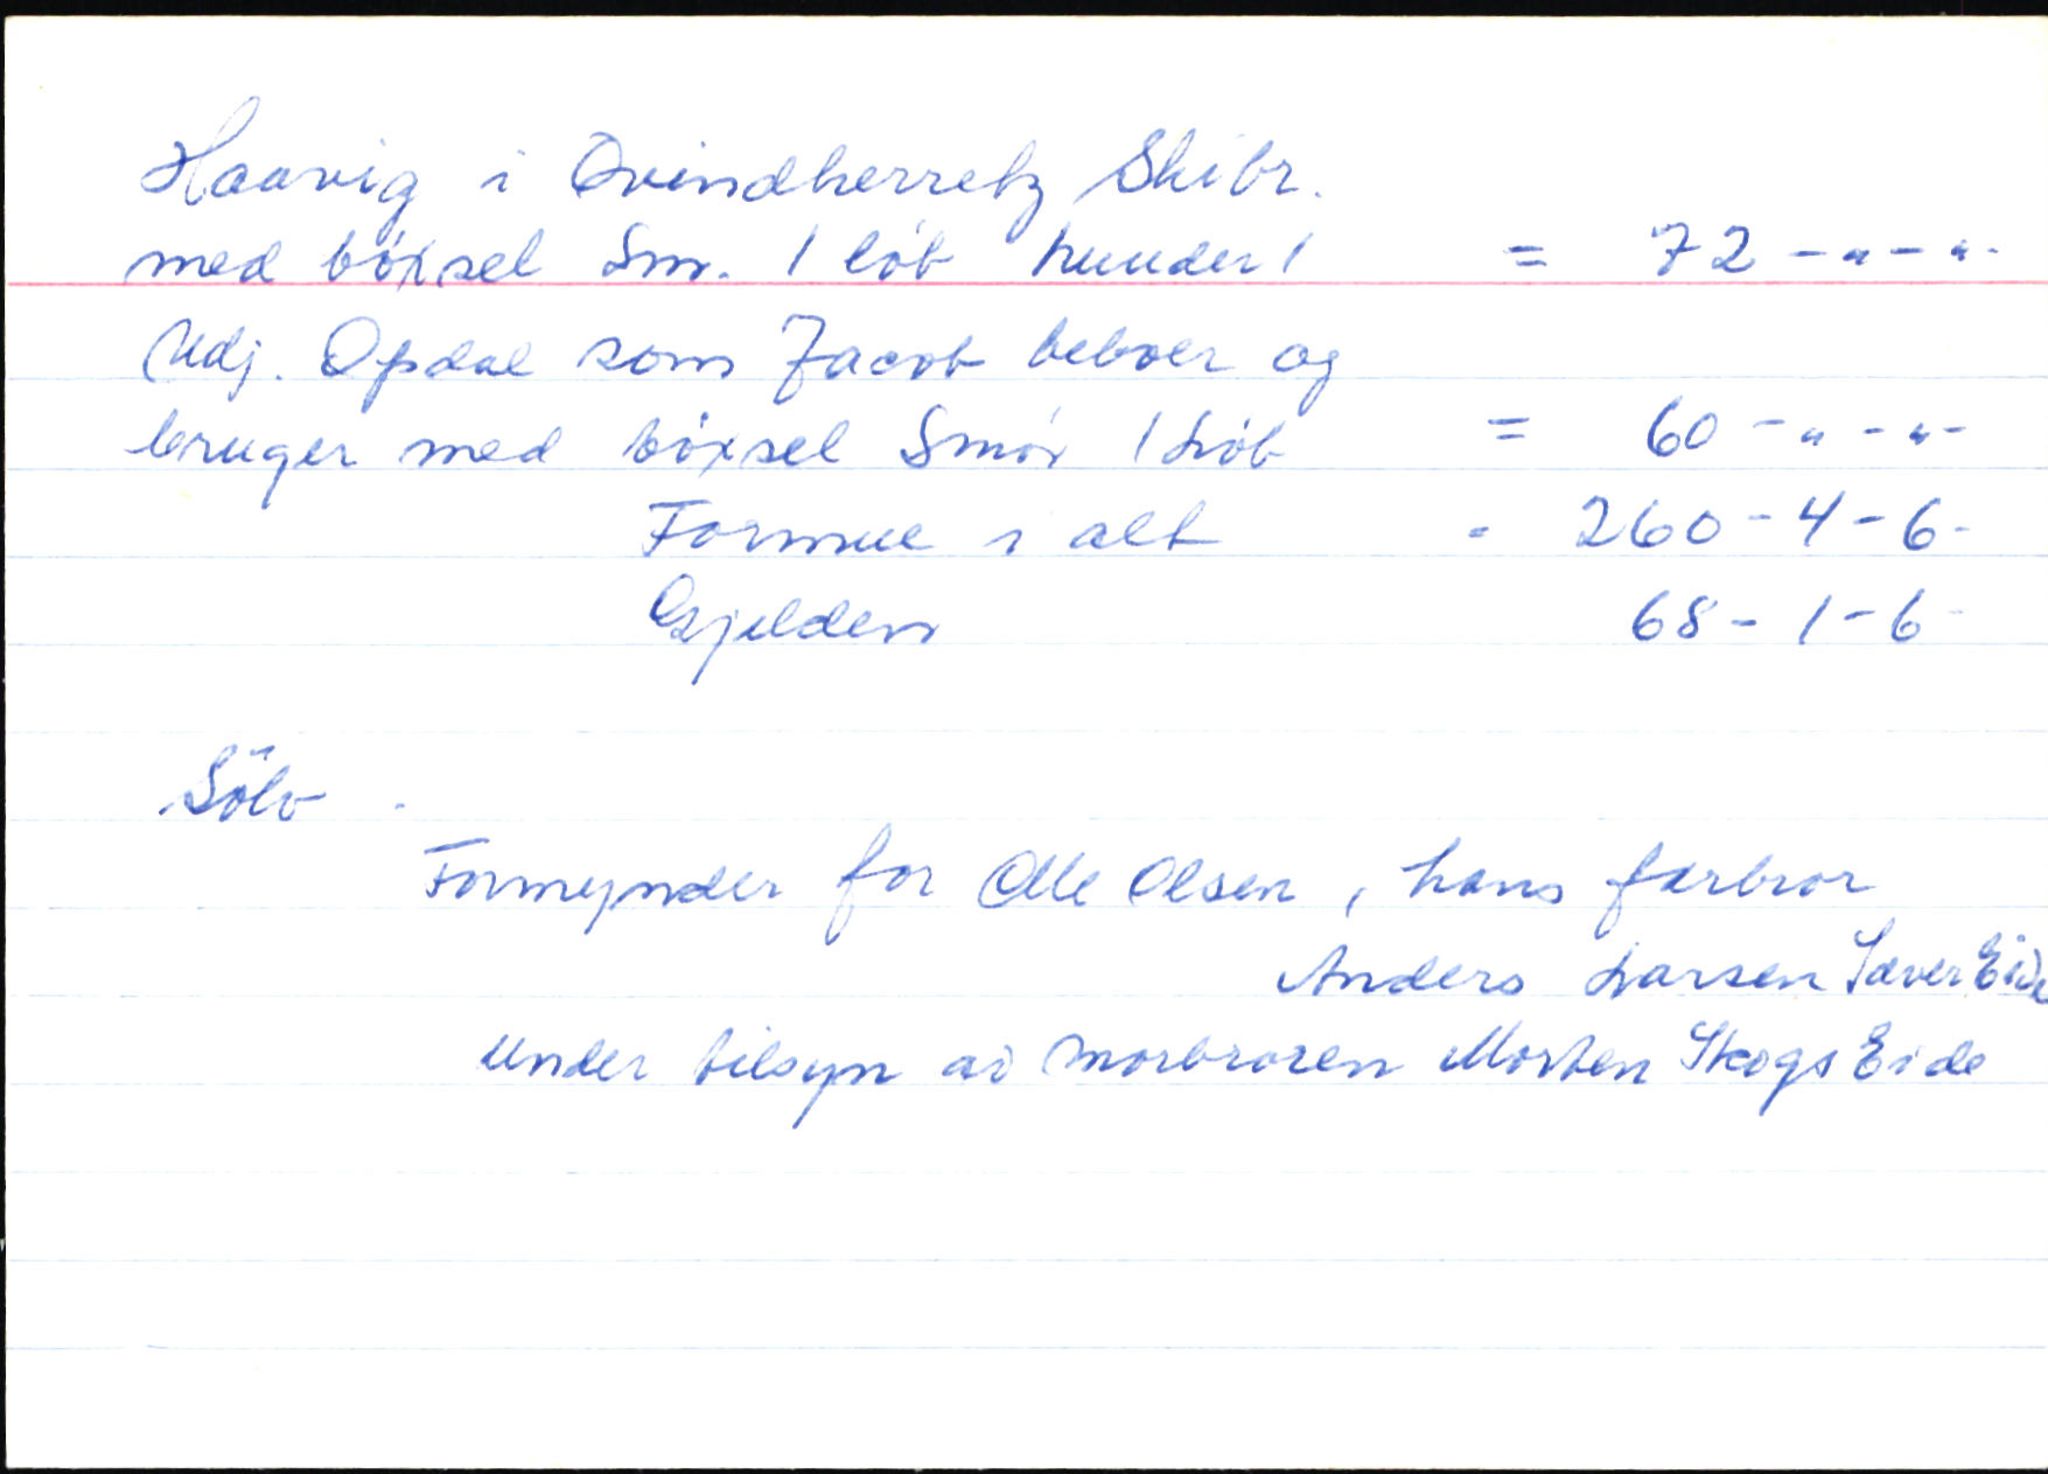 Haavig i Qvindherretz Skibr.
med böxsel Sm. 1 löb huuder 1 = 72 - " - " -
Udj. Opdal som Jacob beboer og
bruger med böxsel Smör 1 Löb = 60 - " - " -
Formue i alt - 260 - 4 - 6 -
Gjelden 68 - 1 - 6 -
Sölv -
Formynder for Olle Olsen, hans farbror
Anders Larsen Sæver Eide
Under tilsyn av morbroren Morten Skogs Eide